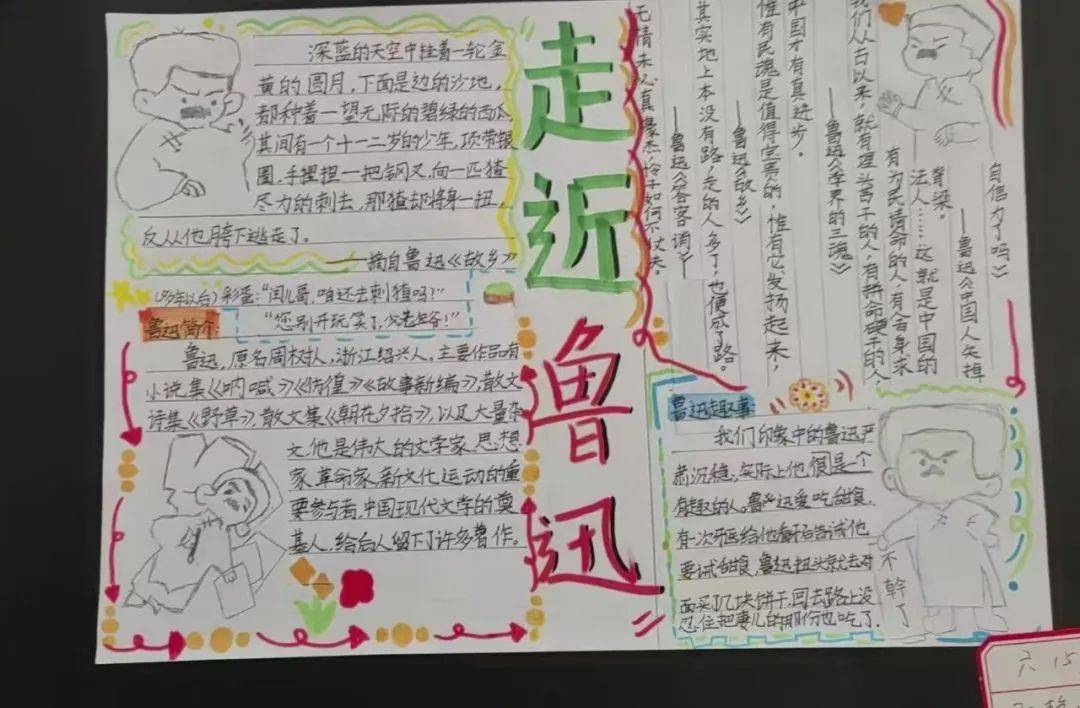 深蓝的天空中挂着一轮金
黄的圆月，下面是边的沙地，
都种着一望无际的碧绿的西瓜
其间有一个十一二岁的少年，项带银
圈，手捏一把钢叉，向一匹猹
尽力的刺去，那猹却将身一扭，
反从他胯下逃走了。
——摘自鲁迅《故乡》
彩蛋："闰儿哥，咱还去刺猹吗？"
"您别开玩笑了，少老爷爷！"
走近
鲁迅
鲁迅简介：
鲁迅，原名周树人，浙江绍兴人，主要作品有
小说集《呐喊》《彷徨》《故事新编》，散文
诗集《野草》，散文集《朝花夕拾》，以及大量杂
文，他是伟大的文学家、思想
家、革命家、新文化运动的重
要参与者，中国现代文学的奠
基人，给后人留下了许多著作。
自信力了吗》
——鲁迅《中国人失掉
脊梁。
法人……这就是中国的
有为民请命的人，有舍身求
我们从古以来，就有埋头苦干的人，有拼命硬干的人，
——鲁迅《学界的三魂》
惟有民魂是值得宝贵的，惟有它发扬起来，
中国才有真进步。
——鲁迅《故乡》
其实地上本没有路，走的人多了，也便成了路。
——鲁迅《答客诮》
无情未必真豪杰，怜子如何不丈夫。
鲁迅趣事：
我们印象中的鲁迅严
肃沉稳，实际上他很是一个
有趣的人，鲁迅爱吃甜食，
有一次牙医给他看牙后告诫他
要戒甜食，鲁迅扭头就去对
西买了几块饼干，回去路上没
忍住把妻儿的那份也吃了。
不幹了
六 15